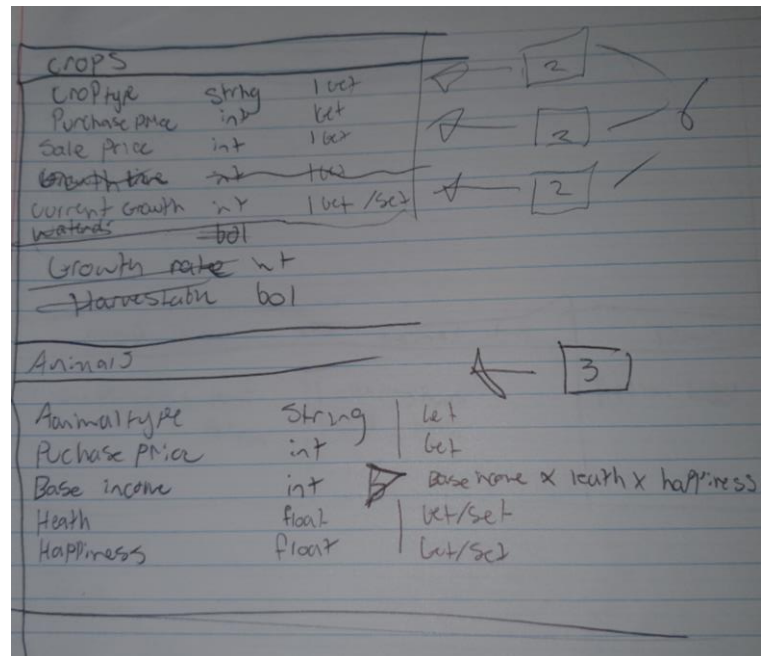 Crops
Croptype String | Get 2
Purchase price int Get
Sale Price int | Get 2 6
Growth time int | Get
Current Growth int | Get /Set 2
bol
Growth rate int
Harvestable bol
Animals
3
Aanimaltype String | Get
Puchase price int | Get
Base income int Base income x heath x happiness
Heath float | Get/Set
Happiness float | Get/Set